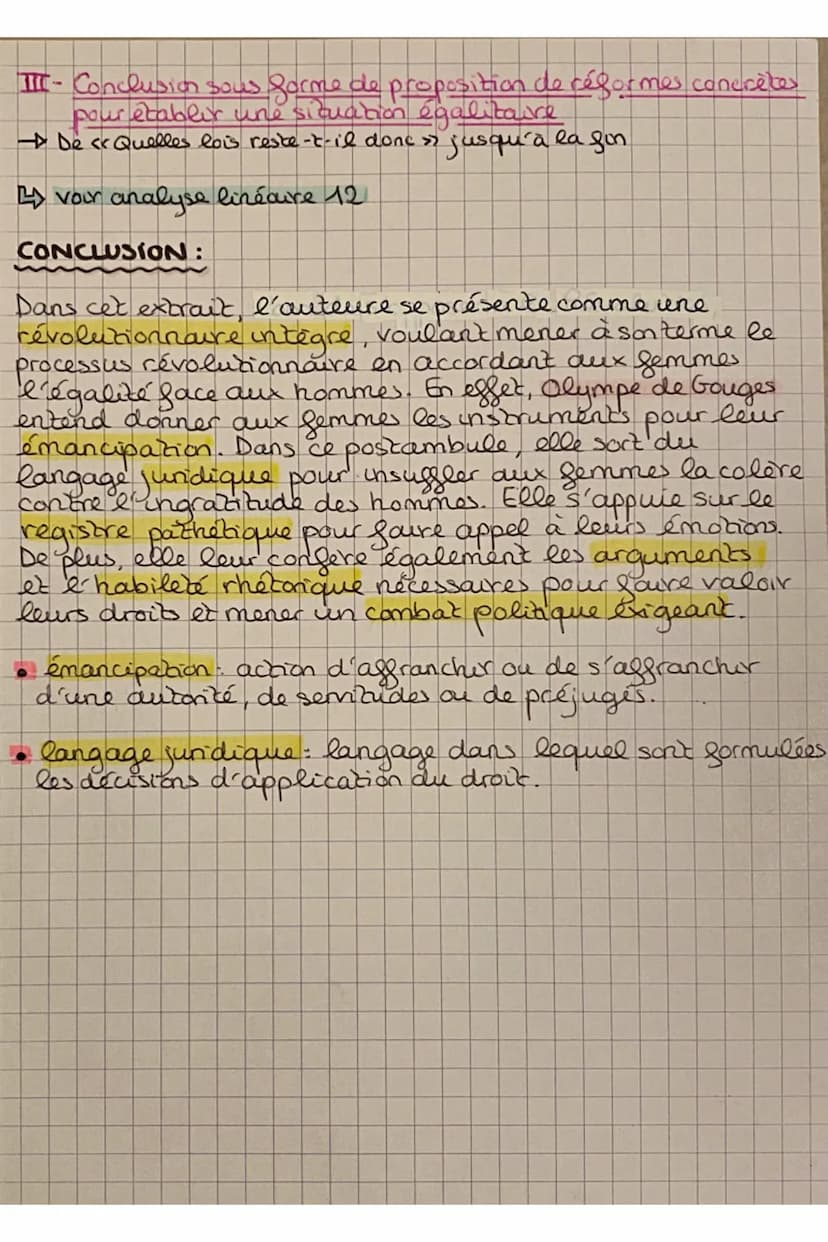 III- Conclusion sous forme de proposition de réformes concrètes
pour établir une situation égalitaire
→ De « Quelles lois reste-t-il donc » jusqu'à la fin
↳ voir analyse linéaire 12
CONCLUSION :
Dans cet extrait, l'auteure se présente comme une
révolutionnaire intègre, voulant mener à son terme le
processus révolutionnaire en accordant aux femmes
l'égalité face aux hommes. En effet, Olympe de Gouges
entend donner aux femmes les instruments pour leur
émancipation. Dans ce postambule, elle sort du
langage juridique pour insuffler aux femmes la colère
contre l'ingratitude des hommes. Elle s'appuie sur le
registre pathétique pour faire appel à leurs émotions.
De plus, elle leur confère également les arguments
et l'habileté rhétorique nécessaires pour faire valoir
leurs droits et mener un combat politique éxigeant.
• émancipation : action d'affranchir ou de s'affranchir
d'une autorité, de servitudes ou de préjugés.
• langage juridique : langage dans lequel sont formulées
les décisions d'application du droit.